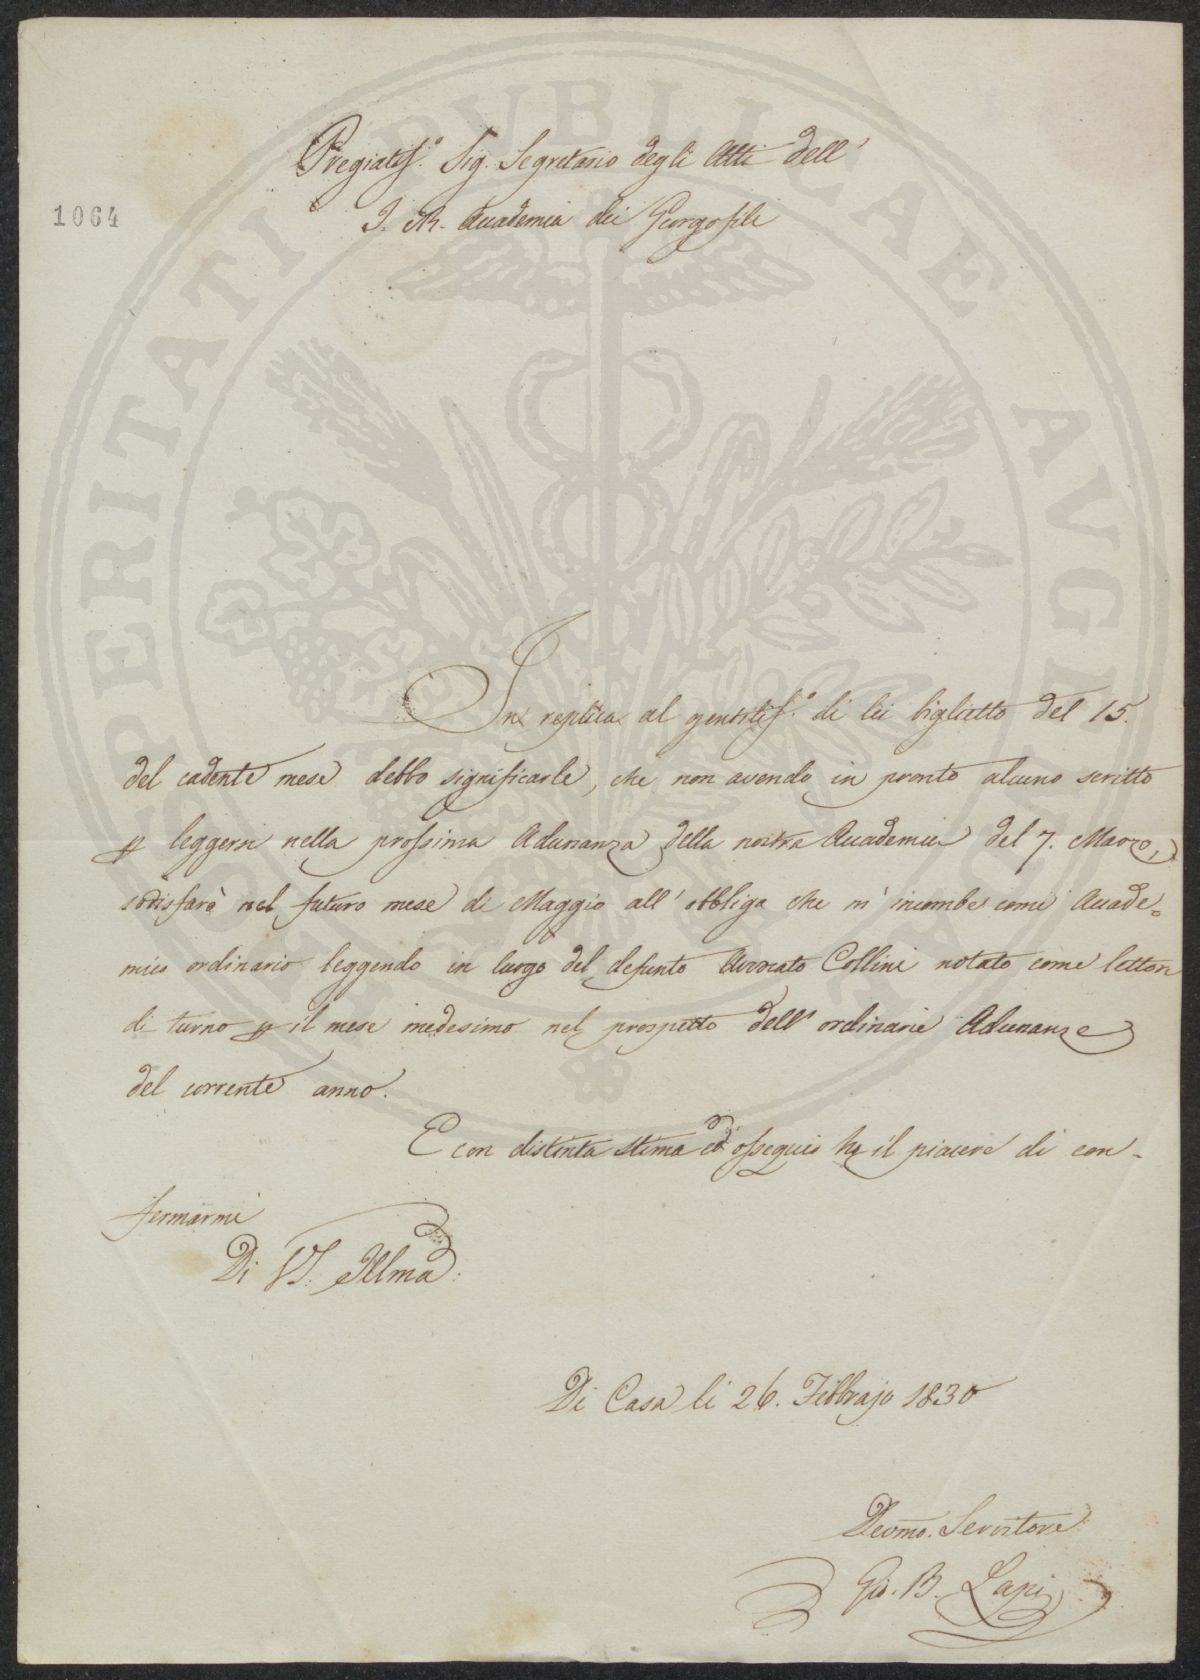 Pregiatiss.º Sig. Segretario degli Atti dell'
I. R. Accademia dei Georgofili
1064
PROSPERITATI PVBLICAE AVGENDAE
In replica al gentiliss.º di lei biglietto del 15.
del cadente mese debbo significarle, che non avendo in pronto alcuno scritto
p leggersi nella prossima Adunanza della nostra Accademia del 7. Marzo,
sodisfarò nel futuro mese di Maggio all' obbligo che m' incombe come Accade=
mico ordinario leggendo in luogo del defunto Avvocato Collini notato come lettore
di turno p il mese medesimo nel prospetto dell' ordinarie Adunanze
del corrente anno.
E con distinta stima ed ossequio ho il piacere di con-
fermarmi
Di VS. Illma
Di Casa li 26. Febbrajo 1830
Devmo. Servitore
Gio. B. Lapi